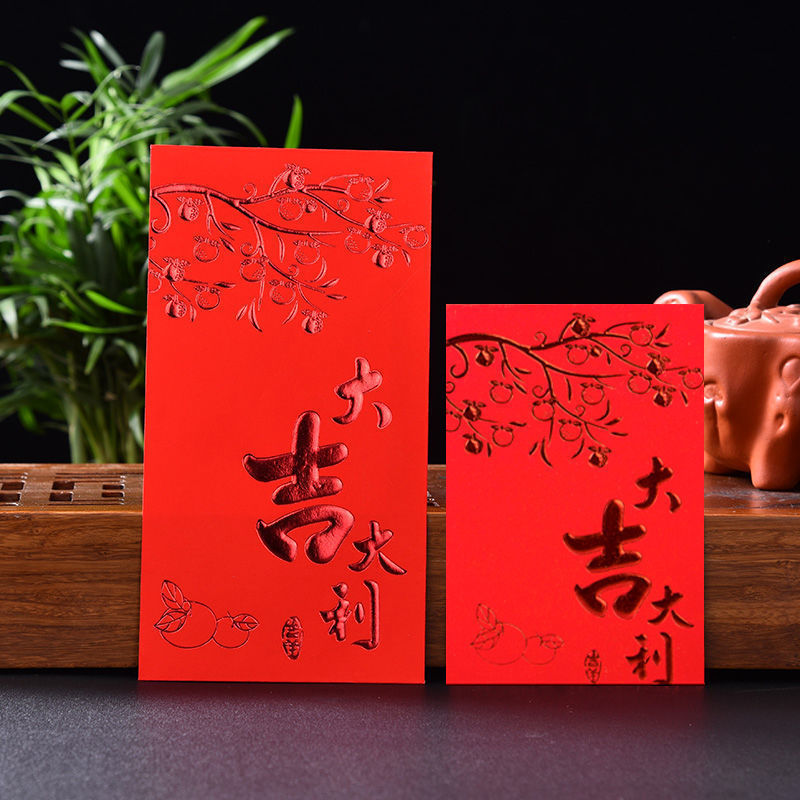 大吉大利
大吉大利